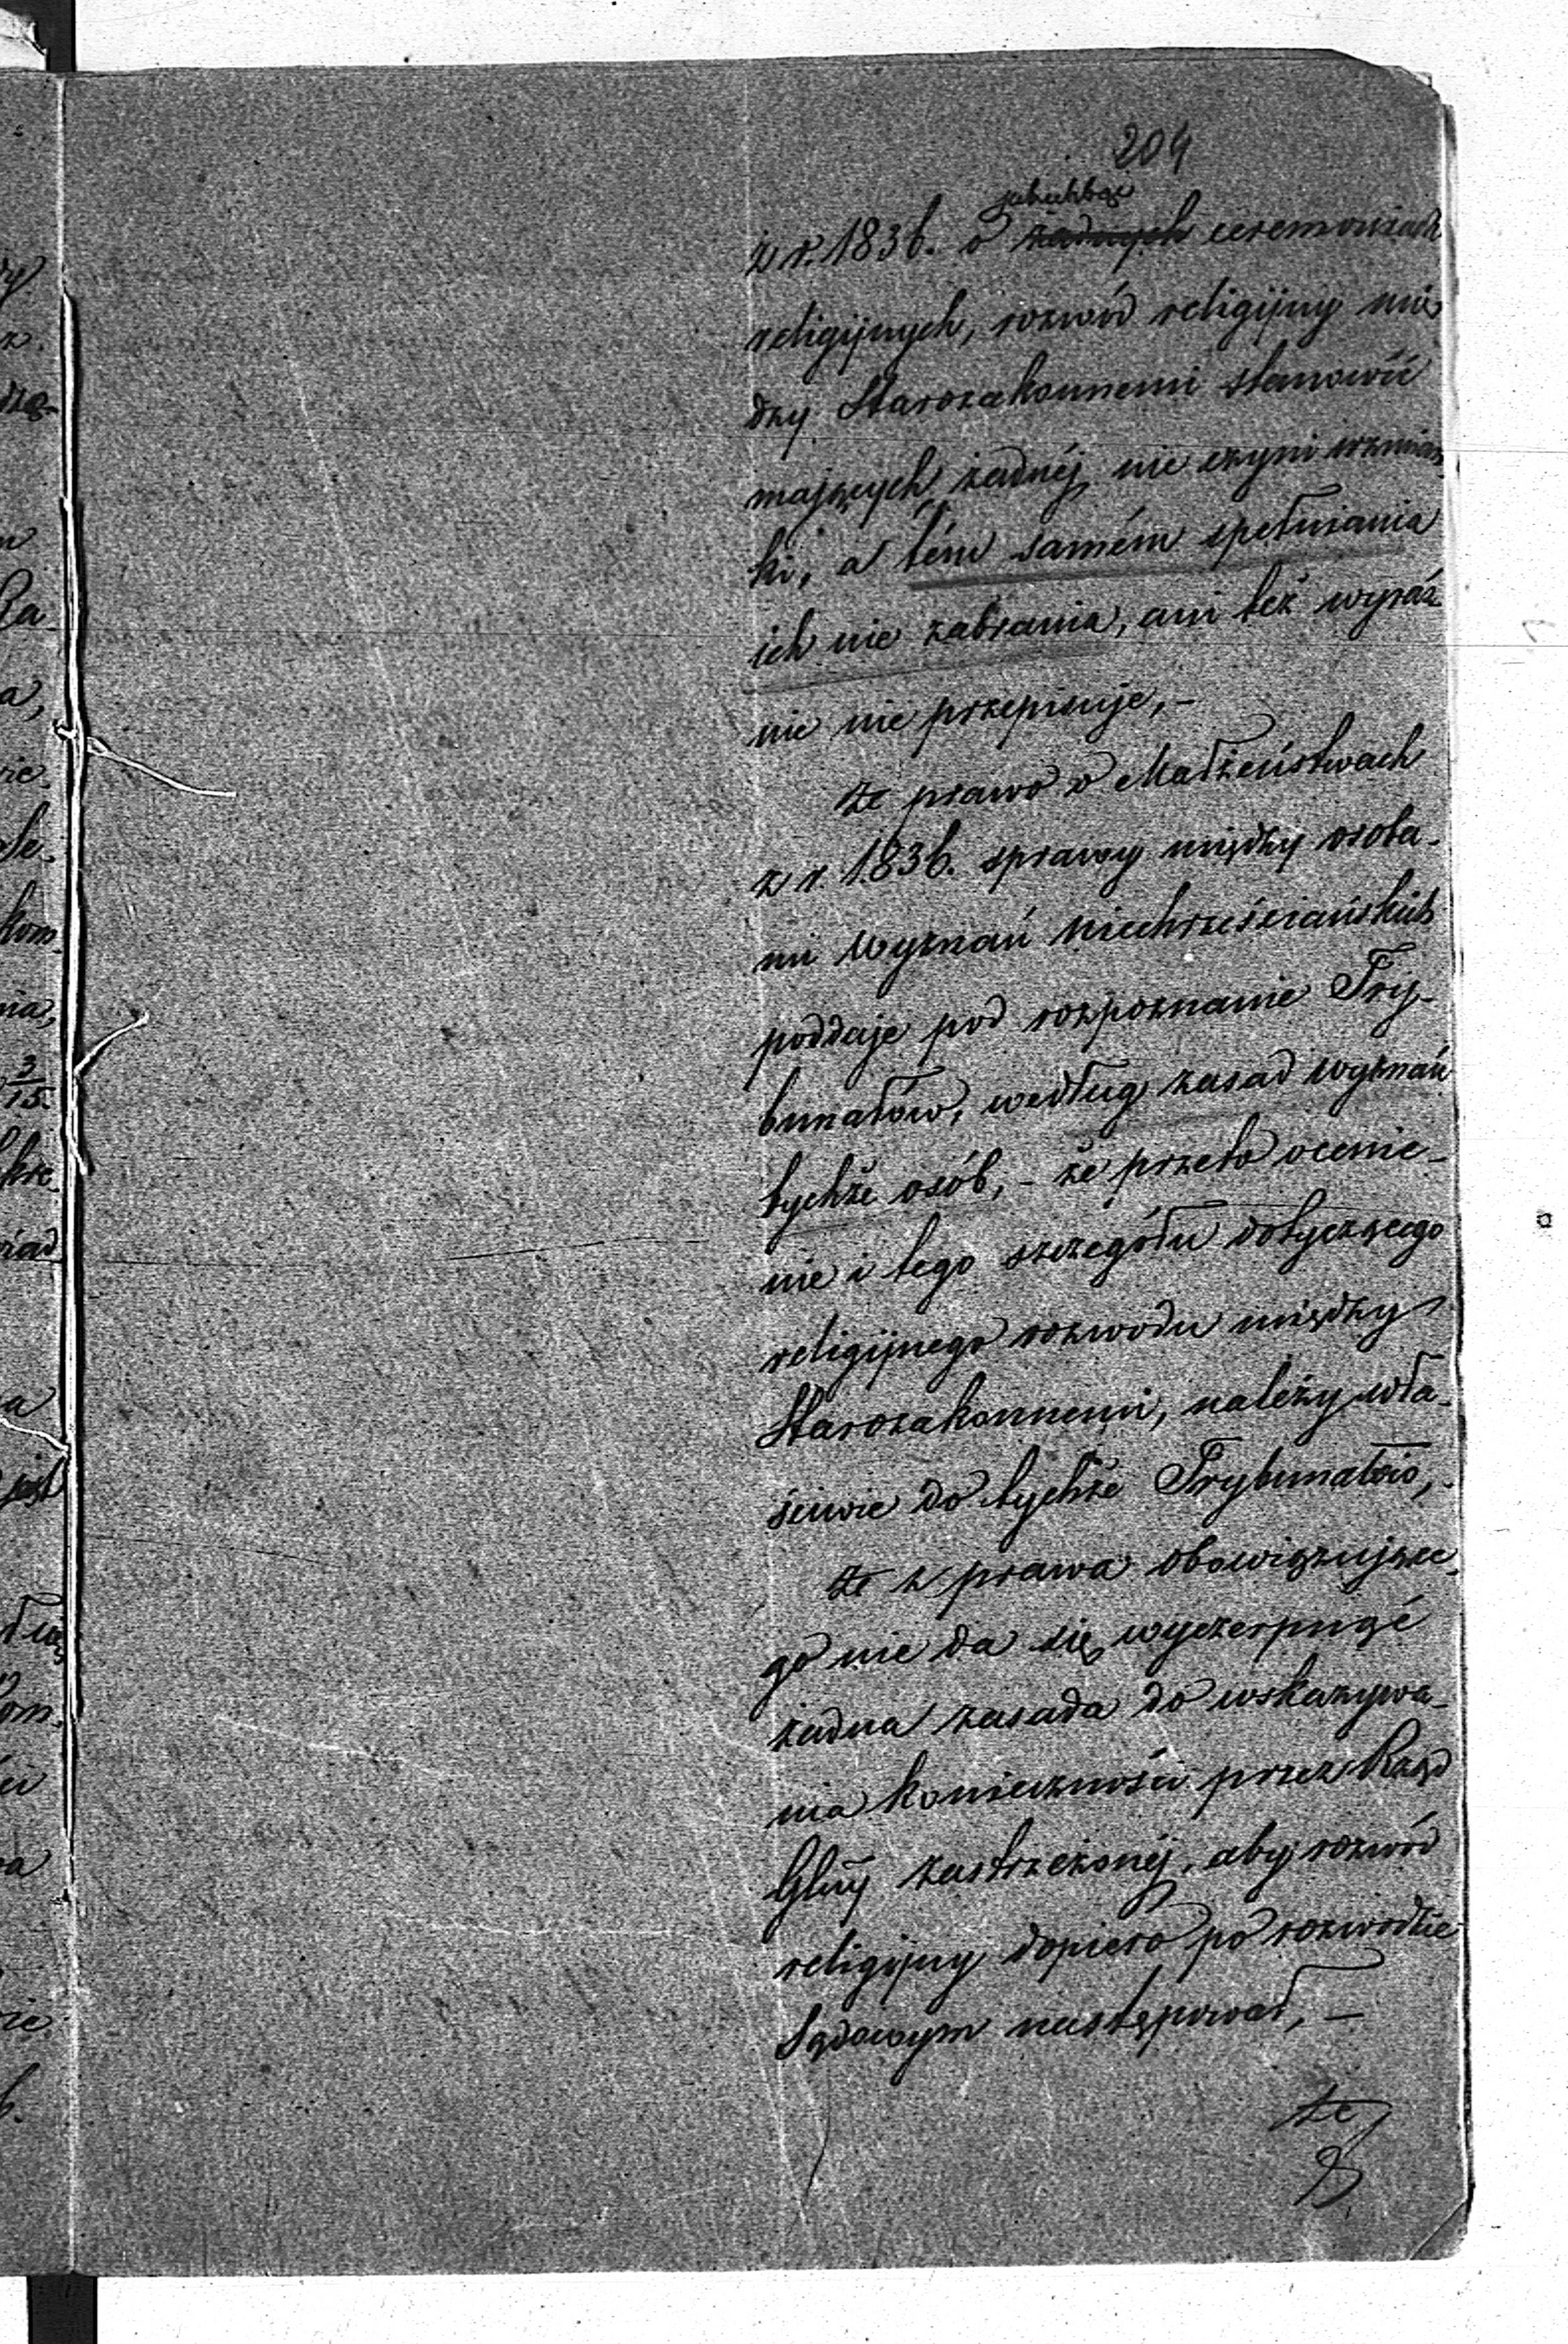 204
jakichbądź
z r. 1836. o żadnych ceremoniach
religijnych, rozwód religijny mię
dzy Starozakonnemi stanowić
mających, żadnéj nie czyni wzmian
ki, a tém samém spełniania
ich nie zabrania, ani też wyráź
nie nie przepisuje, –
że prawo o Małżeństwach
z r. 1836. sprawy między osoba-
mi wyznań niechrześciańskich
poddaje pod rozpoznanie Try-
bunałów, według zasad wyznań
tychże osób, – że przeto ocenie-
nie i tego szczegółu dotyczącego
religijnego rozwodu między
Starozakonnemi, należy wła-
ściwie do tychże Trybunałów, –
że z prawa obowiązujące-
go nie da się wyczerpnąć
żadna zasada do wskazywa-
nia konieczności przez Rząd
Glny zastrzeżonéj, aby rozwód
religijny dopiero po rozwodzie
Sądowym następował, –
że